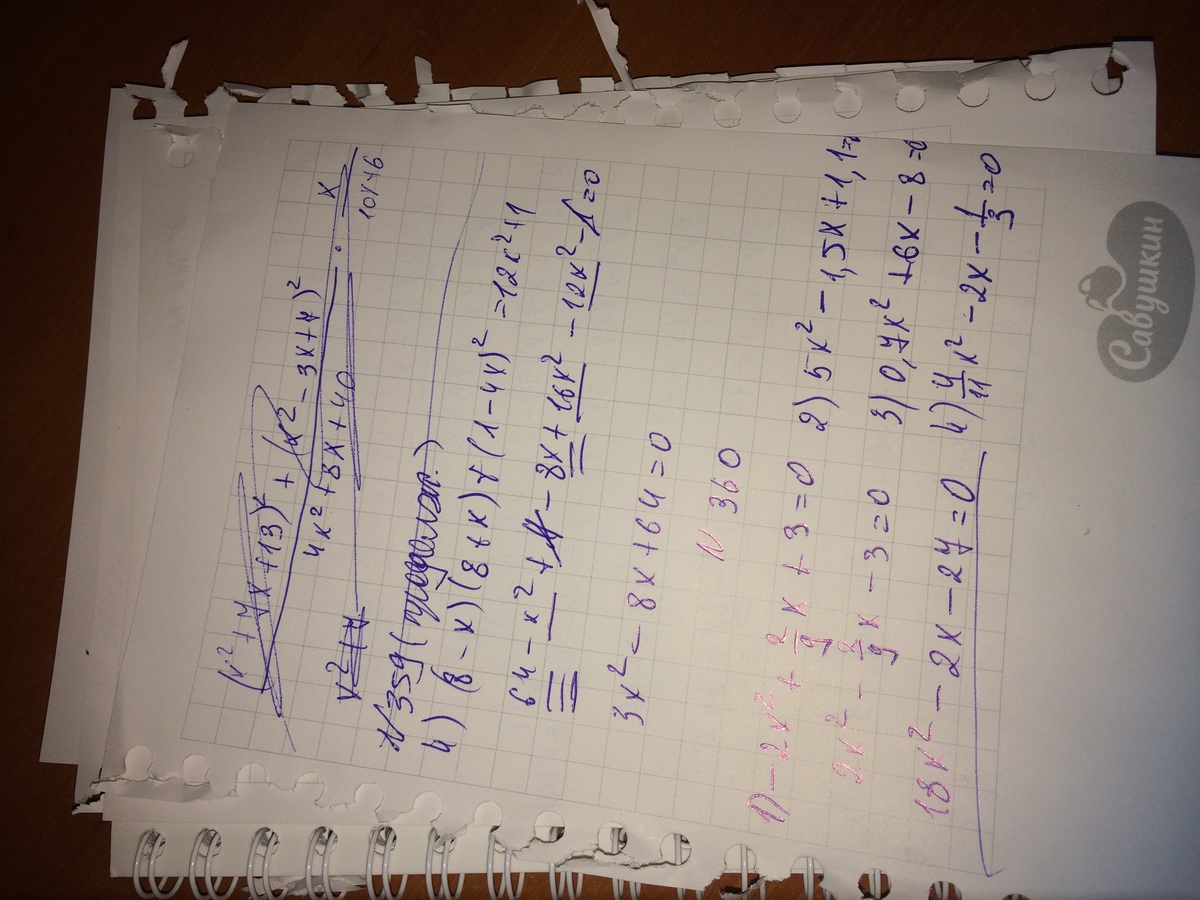 (x² + 7x + 13)² + (x² - 3x + 4)²
4x² + 8x + 40 · x
10x+6
x² + 7
№359 (продолж.)
4) (8 - x)(8 + x) + (1 - 4x)² = 12x² + 1
64 - x² + 1 - 8x + 16x² - 12x² - 1 = 0
3x² - 8x + 64 = 0
N 360
1) - 2x² + 2/9 x + 3 = 0
2x² - 2/9 x - 3 = 0
18x² - 2x - 27 = 0
2) 5x² - 1,5x + 1,1 =
3) 0,7x² + 6x - 8 = 0
4) 4/11 x² - 2x - 1/3 = 0
Савушкин